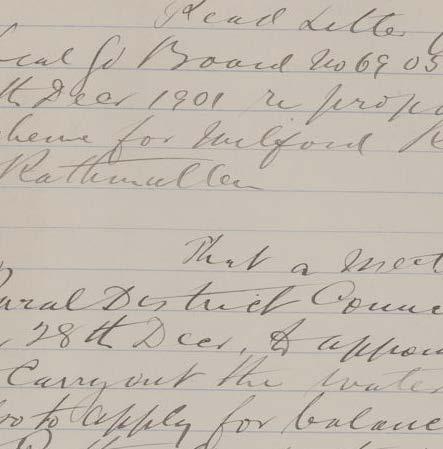 Read Letter
cal Gt Board No 69 05
th Decr 1901 re propo
cheme for Milford R
Rathmullen
That a meet
ural District Counc
28th Decr, & appoin
carry out the water
to apply for balanc